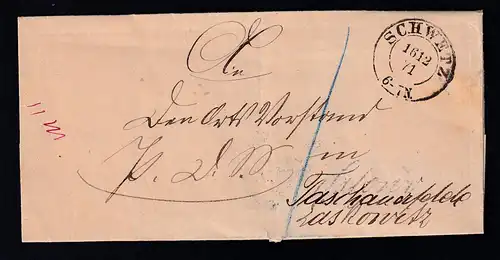 SCHWETZ
1612
71
6-7N.
An
Den Orts Vorstand
P. d. S.
in
Taschauerfelde
Laskowitz